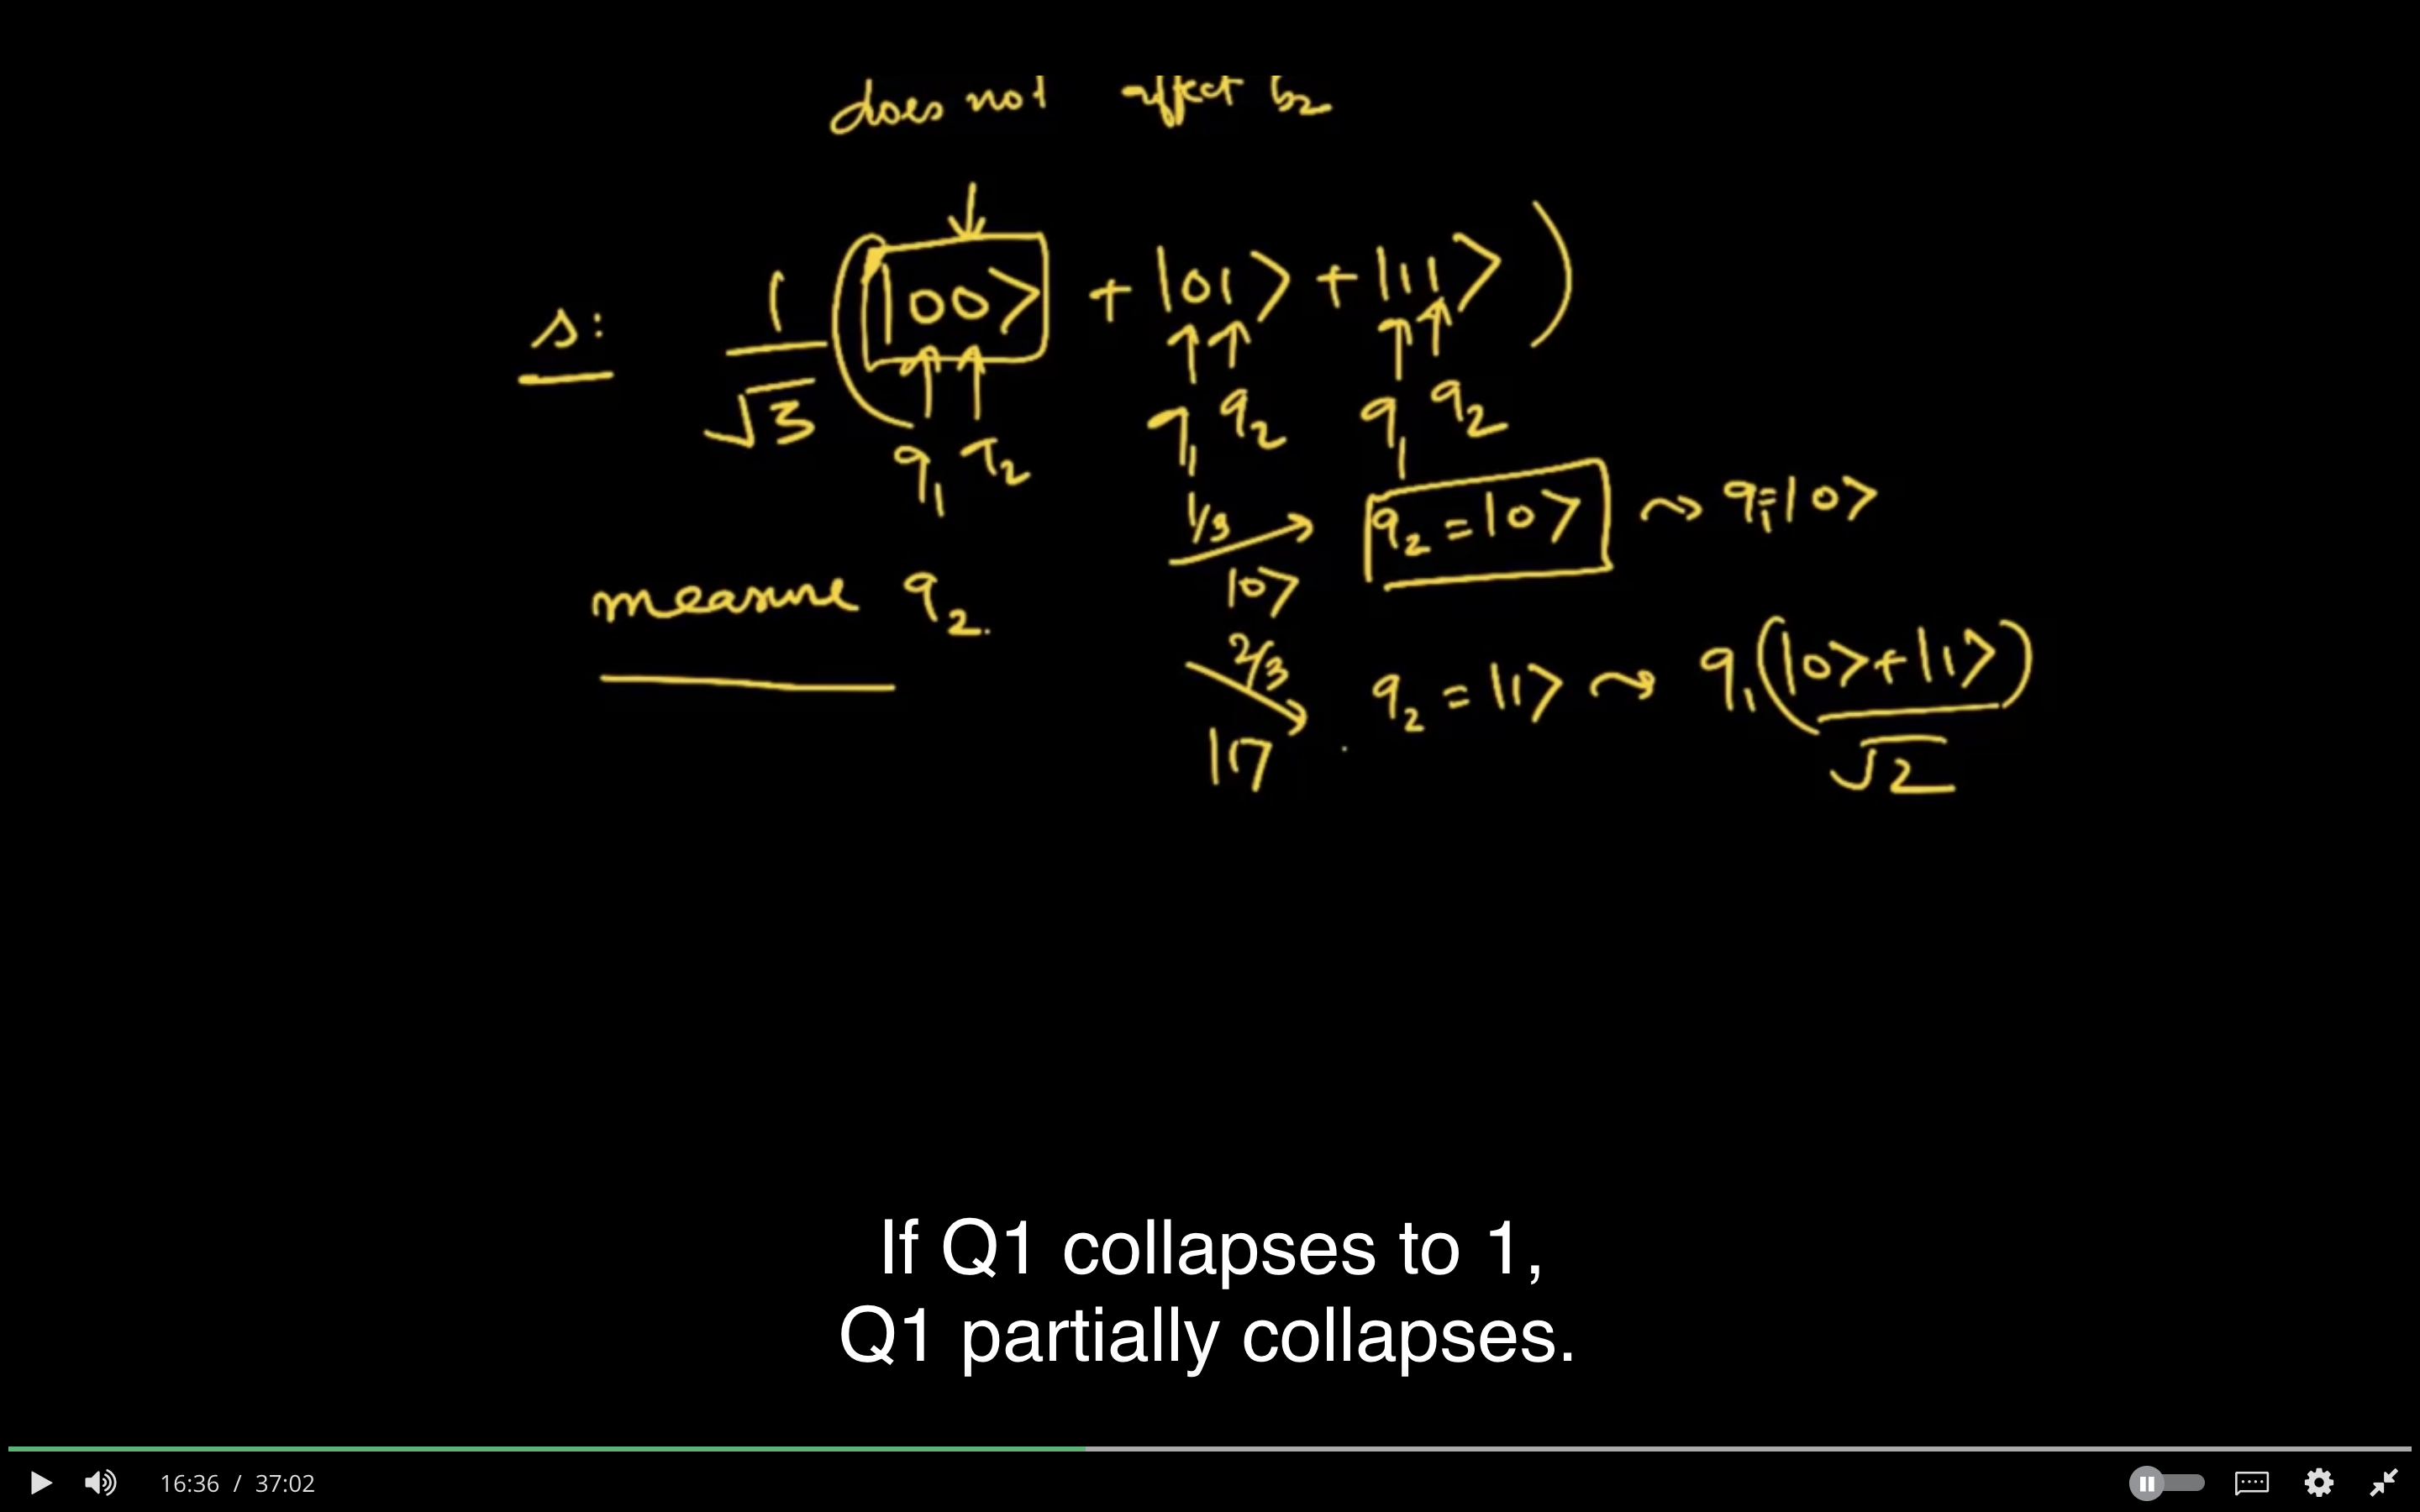 does not affect b₂
s: 1/√3 (|00⟩ + |01⟩ + |11⟩)
q₁ q₂ q₁ q₂ q₁ q₂
1/3 |0⟩ q₂ = |0⟩ ⤳ q₁ = |0⟩
measure q₂.
2/3 |1⟩ q₂ = |1⟩ ⤳ q₁ (|0⟩ + |1⟩)/√2
If Q1 collapses to 1,
Q1 partially collapses.
16:36 / 37:02